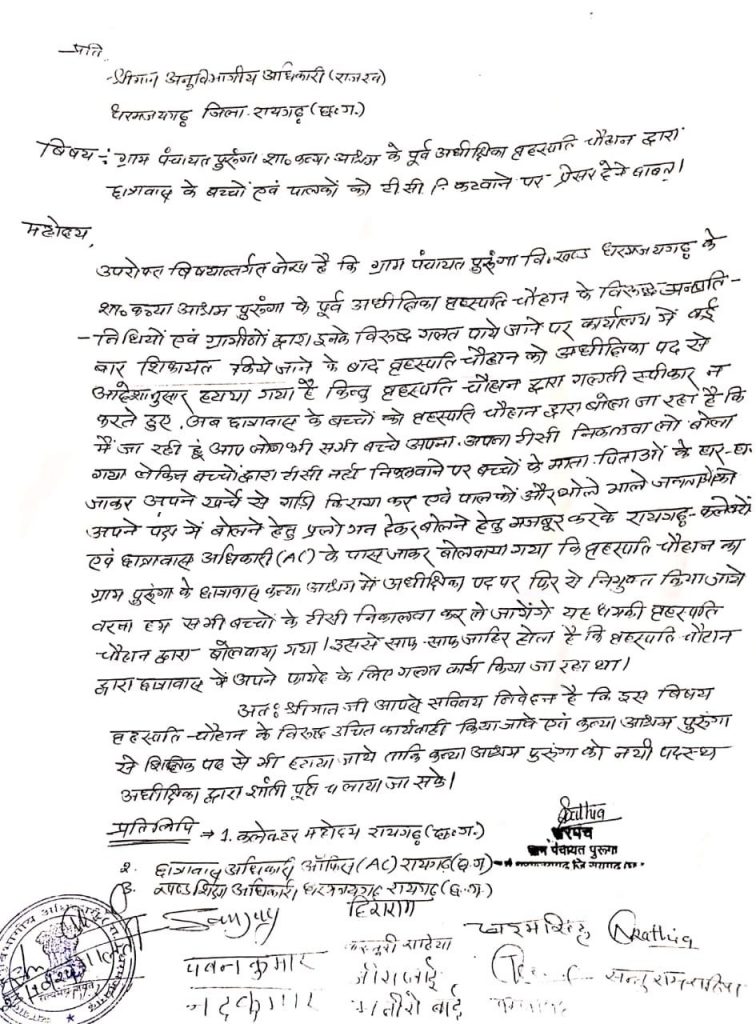 प्रति,
श्रीमान अनुविभागीय अधिकारी (राजस्व)
धरमजयगढ़ जिला-रायगढ़ (छ.ग.)
विषय:- ग्राम पंचायत पुरुंगा शा० कन्या आश्रम के पूर्व अधीक्षिका बृहस्पति चौहान द्वारा
छात्रावास के बच्चों एवं पालकों को टीसी कटवाने पर प्रेसर देने बाबत्।
महोदय,
उपरोक्त विषयान्तर्गत लेख है कि ग्राम पंचायत पुरुंगा वि.खण्ड धरमजयगढ़ के
शा० कन्या आश्रम पुरुंगा के पूर्व अधीक्षिका बृहस्पति चौहान के विरूद्ध जनप्रति-
-निधियों एवं ग्रामीणों द्वारा इनके विरूद्ध गलत पाये जाने पर कार्यालय में कई
बार शिकायत किये जाने के बाद बृहस्पति चौहान को अधीक्षिका पद से
आदेशानुसार हटाया गया है किन्तु बृहस्पति चौहान द्वारा गलती स्वीकार न
करते हुए, अब छात्रावास के बच्चों को बृहस्पति चौहान द्वारा बोला जा रहा है कि
मैं जा रही हूं आप लोग भी सभी बच्चे अपना-अपना टीसी निकलवा लो बोला
गया लेकिन बच्चों द्वारा टीसी नहीं निकलवाने पर बच्चों के माता-पिताओं के घर-घर
जाकर अपने खर्चे से गाड़ी किराया कर एवं पालकों और भोले भाले जनता को
अपने पक्ष में बोलने हेतु प्रलोभन देकर बोलने हेतु मजबूर करके रायगढ़-कलेक्टर
एवं छात्रावास अधिकारी (AC) के पास जाकर बोलवाया गया कि बृहस्पति चौहान का
ग्राम पुरुंगा के छात्रावास कन्या आश्रम में अधीक्षिका पद पर फिर से नियुक्त किया जाये
वरना हम सभी बच्चों के टीसी निकालवा कर ले जायेंगे यह धमकी बृहस्पति
चौहान द्वारा बोलवाया गया। इससे साफ-साफ जाहिर होता है कि बृहस्पति चौहान
द्वारा छात्रावास में अपने फायदे के लिए गलत कार्य किया जा रहा था।
अतः श्रीमान जी आपसे सविनय निवेदन है कि इस विषय
बृहस्पति चौहान के विरूद्ध उचित कार्यवाही किया जावे एवं कन्या आश्रम पुरुंगा
से शिक्षक पद से भी हटाया जाये ताकि कन्या आश्रम पुरुंगा को नयी पदस्थ
अधीक्षिका द्वारा शांती पूर्वक चलाया जा सके।
प्रतिलिपि → 1. कलेक्टर महोदय रायगढ़ (छ.ग.)
Rathia
सरपंच
ग्राम पंचायत पुरुंगा
2. छात्रावास अधिकारी ऑफिस (AC) रायगढ़ (छ.ग)
3. खण्ड शिक्षा अधिकारी धरमजयगढ़ रायगढ़ (छ.ग.)
Sanjay हिराराम
Rathia
पवन कुमार
नंदकुमार